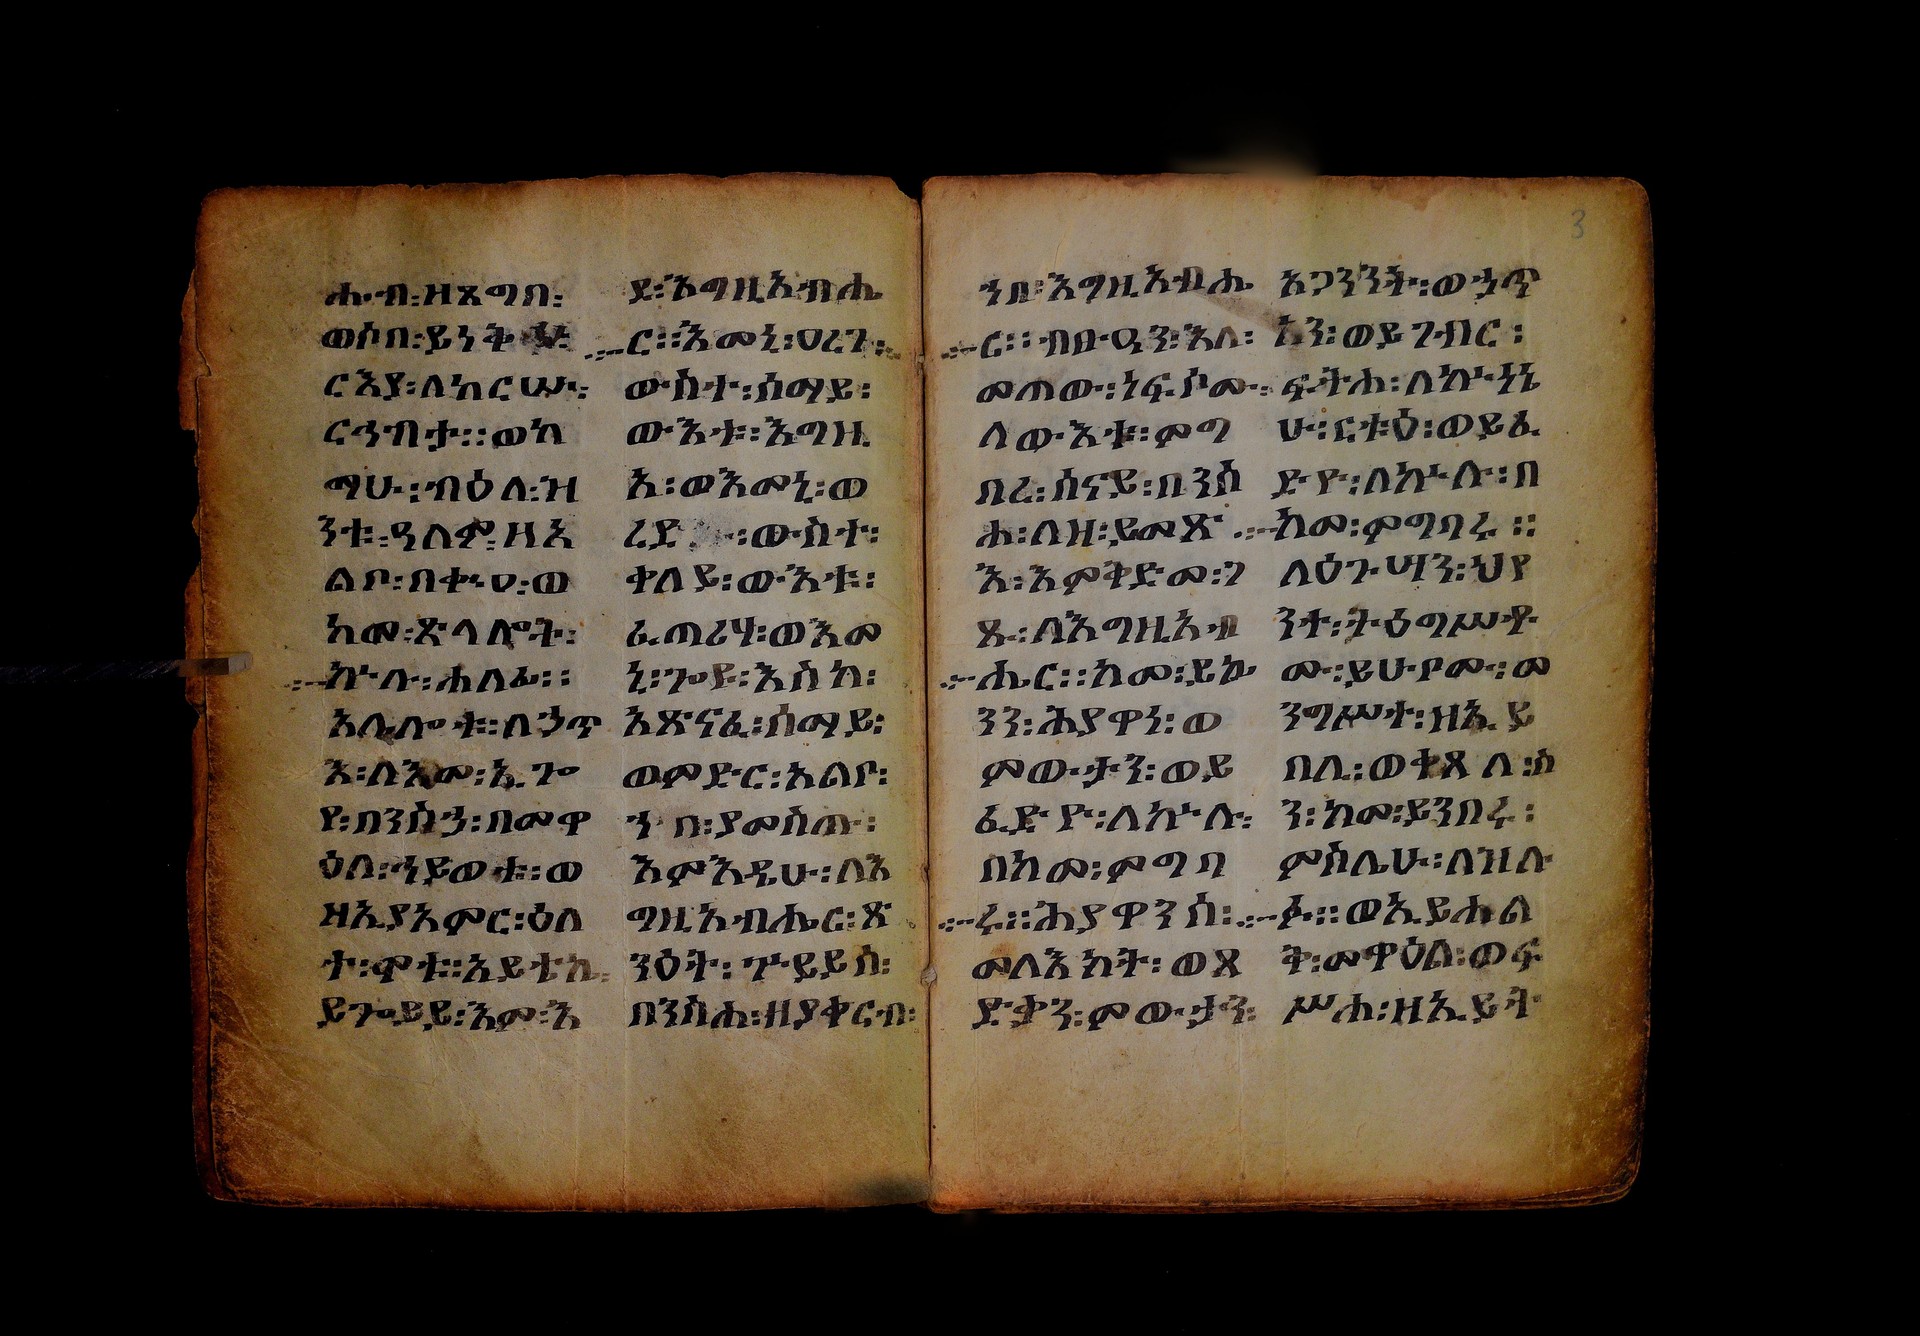 ሑብ፡ዘጸግበ፡
ወሶበ፡ይነቅህ፡
ርእያ፡ለከርሡ፡
ርኅብታ፡፡ወከ
ማሁ፡ብዕለ፡ዝ
ንቱ፡ዓለም፡ዘእ
ልቦ፡በቍዔ፡ወ
ከመ፡ጽላሎት፡
ኵሉ፡ሐለፊ፡፡
አሌሎቱ፡ለኃጥ
እ፡ለእመ፡ኢጐ
የ፡በንስሓ፡በመዋ
ዕለ፡ኀይወቱ፡ወ
ዘኢያአምር፡ዕለ
ተ፡ሞቱ፡አይቴኬ፡
ይጐይይ፡እም፡እ
ደ፡እግዚአብሔ
ር፡፡እመኒ፡ዐረገ፡
ውስተ፡ሰማይ፡
ውእቱ፡እግዚ
አ፡ወእመኒ፡ወ
ረደ፡ውስተ፡
ቀላይ፡ውእቱ፡
ፈጣሪሃ፡ወእመ
ኒ፡ጐየ፡እስከ፡
አጽናፈ፡ሰማይ፡
ወምድር፡አልቦ፡
ኀበ፡ያመስጡ፡
እምእዴሁ፡ለእ
ግዚአብሔር፡ጽ
ንዕት፡ጕይይሰ፡
በንስሐ፡ዘያቀርብ፡
ኀበ፡እግዚአብሔ
ር፡፡ብፁዓን፡እለ፡
መጠው፡ነፍሶሙ፡
ለውእቱ፡ምግ
በረ፡ሰናይ፡በንስ
ሐ፡ለዘ፡ይመጽ
እ፡እምቅድመ፡ገ
ጹ፡ለእግዚአብ
ሔር፡፡ከመ፡ይኴ
ንን፡ሕያዋነ፡ወ
ምውታን፡ወይ
ፈድዮ፡ለኵሉ፡
በከመ፡ምግባ
ሩ፡፡ሕያዋንሰ፡
መላእክት፡ወጻ
ድቃን፡ምውታን፡
አጋንንት፡ወኃጥ
አን፡ወይገብር፡
ፍትሐ፡ለኵነኔ
ሁ፡ርቱዕ፡ወይፈ
ድዮ፡ለኵሉ፡በ
ከመ፡ምግባሩ፡፡
ለዕጉሣን፡ህየ
ንተ፡ትዕግሥቶ
ሙ፡ይሁቦሙ፡መ
ንግሥተ፡ዘኢይ
በሊ፡ወቀጸላ፡ስ
ን፡ከመ፡ይንበሩ፡
ምስሌሁ፡ለዝሉ
ፉ፡፡ወኢይሐል
ቅ፡መዋዕል፡ወፍ
ሥሐ፡ዘኢይት
3